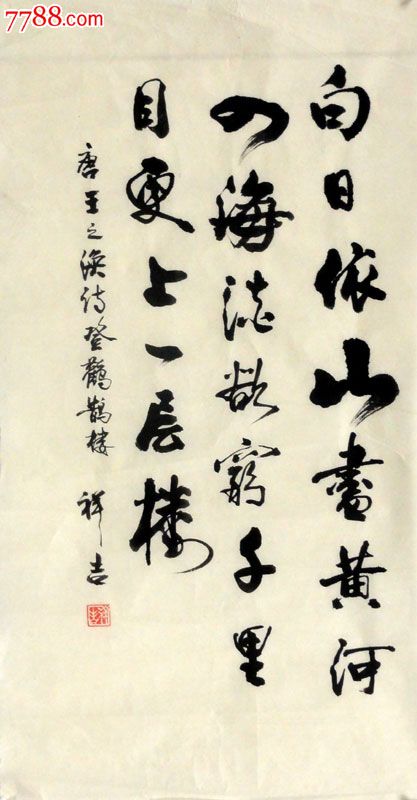 7788.com
白日依山盡黄河
入海流欲窮千里
目更上一层楼
唐王之涣诗登鸛鵲楼 祥吉